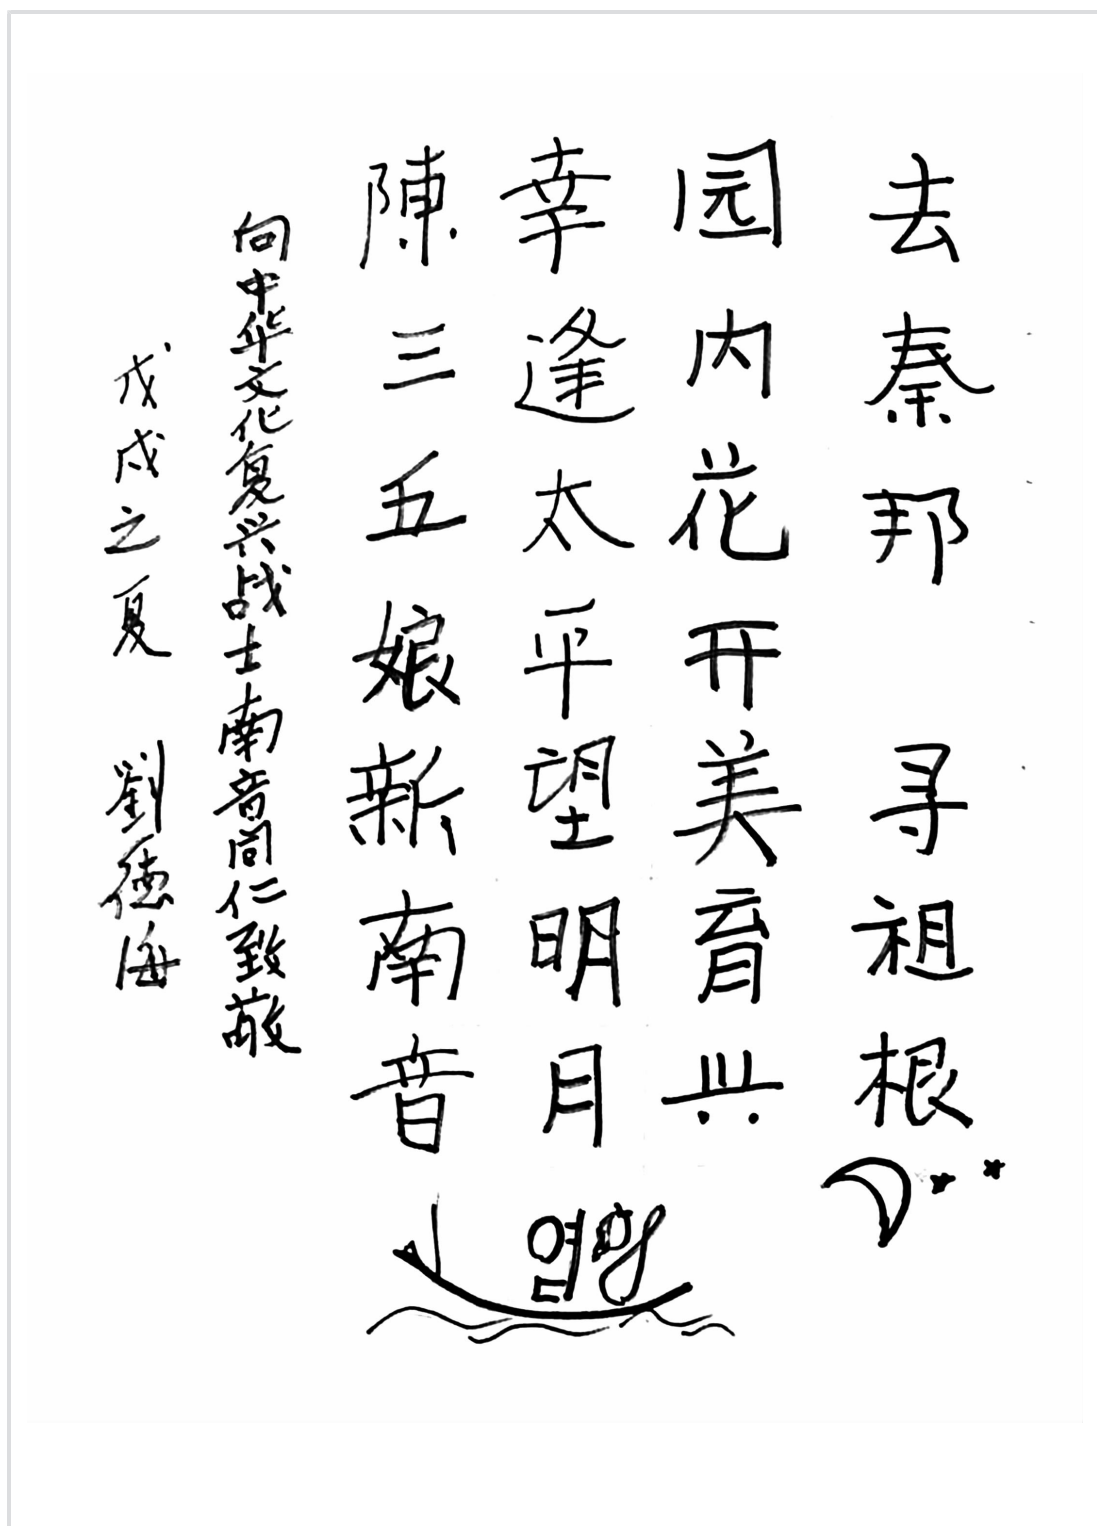 去秦邦 寻祖根
园内花开美育兴
幸逢太平望明月
陳三五娘新南音
向中华文化复兴战士南音同仁致敬
戊戌之夏 劉德海